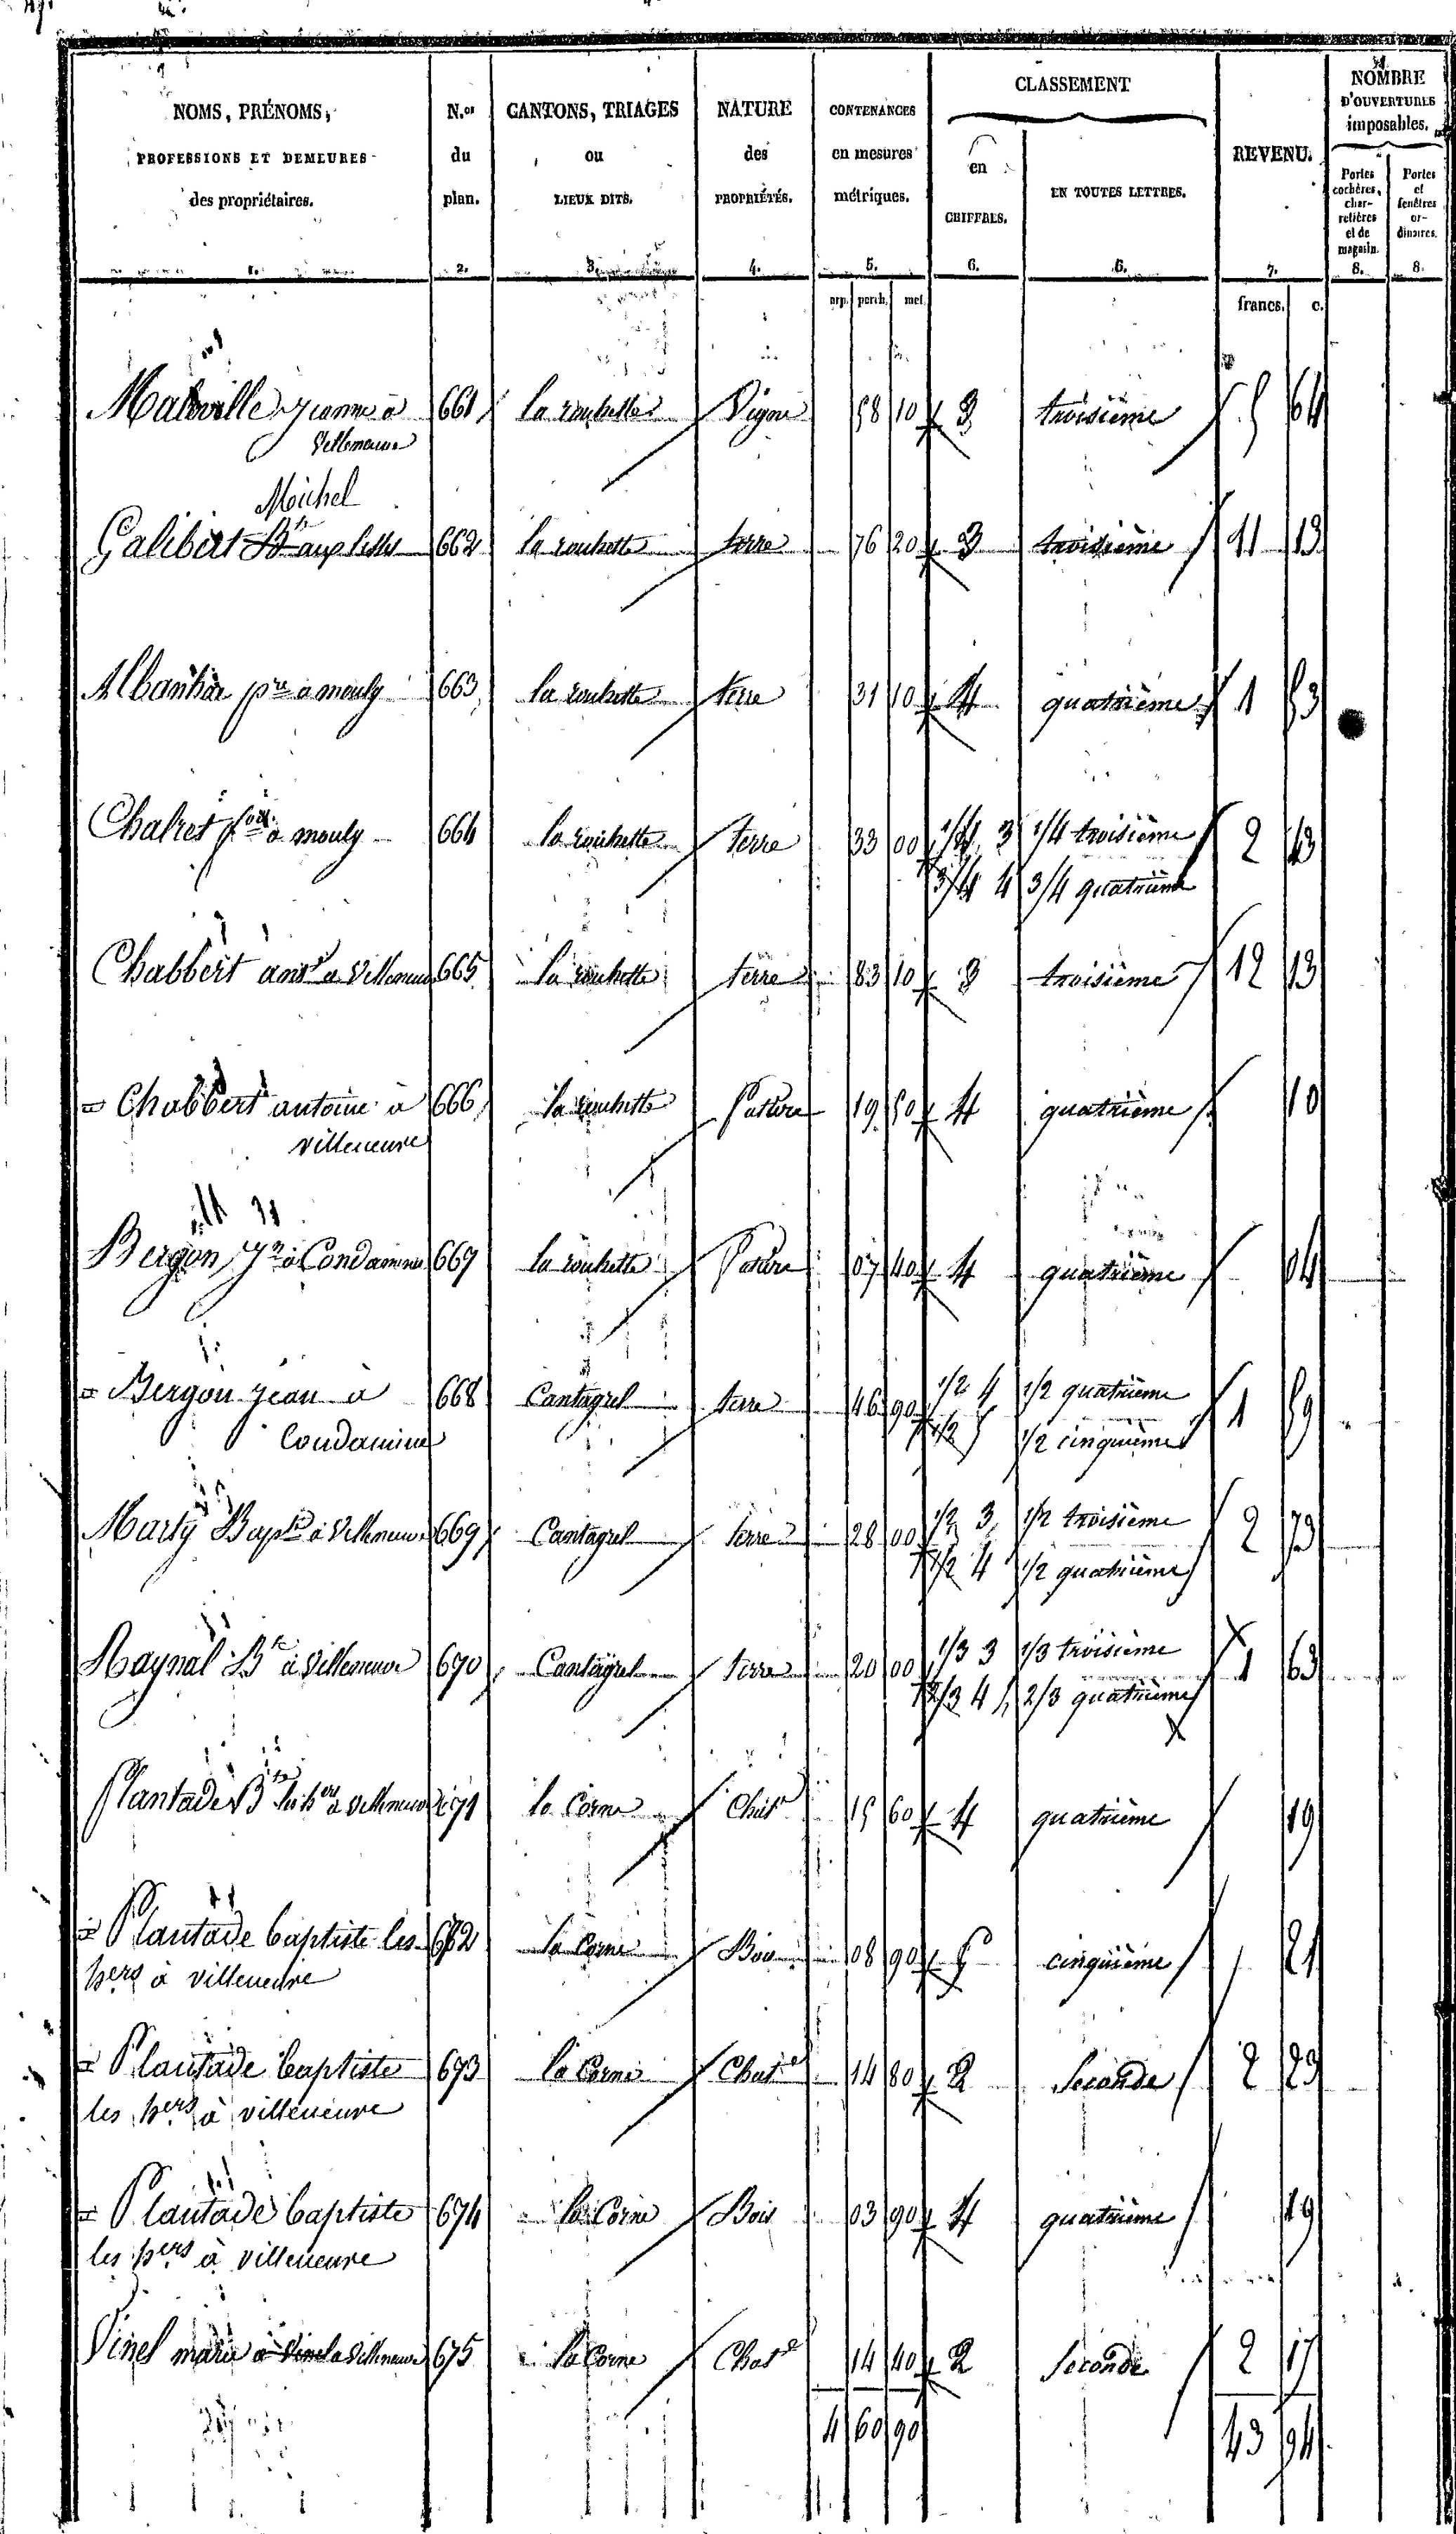 NOMS, PRÉNOMS, PROFESSIONS ET DEMEURES des propriétaires. 1.
N.os du plan. 2.
CANTONS, TRIAGES ou LIEUX DITS. 3.
NATURE des PROPRIÉTÉS. 4.
CONTENANCES en mesures métriques. 5.
CLASSEMENT
en CHIFFRES. 6.
EN TOUTES LETTRES. 6.
REVENU. 7.
NOMBRE D'OUVERTURES imposables.
Portes cochères, charretières et de magasin. 8.
Portes et fenêtres ordinaires. 8.
arp. perch. met. francs. c.
jeanne à 661 la rouhette Vigne 58 10 3 troisième 5 64
Villeneuve
Michel
Galibert Bte aux 662 la rouhette terre 76 20 3 troisième 11 13
pre à mouly 663 la rouhette terre 31 10 4 quatrième 1 53
Chalret à mouly 664 la rouhette terre 33 00 1/4 3 1/4 troisième 2 43
3/4 4 3/4 quatrième
Chabbert ant à Villeneuve 665 la rouhette terre 83 10 3 troisième 12 13
= Chabbert antoine à 666 la rouhette Pature 19 50 4 quatrième 10
villeneuve
Bergon Jn à Condamines 667 la rouhette Pature 07 40 4 quatrième 04
= Bergon jean à 668 Cantagrel terre 46 90 1/2 4 1/2 quatrième 1 59
Condamines 1/2 5 1/2 cinquième
Marty Bapte à Villeneuve 669 Cantagrel terre 28 00 1/2 3 1/2 troisième 2 73
1/2 4 1/2 quatrième
Raynal Bte à Villeneuve 670 Cantagrel terre 20 00 1/3 3 1/3 troisième 1 63
2/3 4 2/3 quatrième
Plantade Bte les hers à Villeneuve 671 la Corne Chat 15 60 4 quatrième 19
= Plantade baptiste les 672 la Corne Bois 08 90 5 cinquième 21
hers à villeneuve
= Plantade baptiste 673 la Corne Chate 14 80 2 Seconde 2 23
les hers à villeneuve
= Plantade baptiste 674 la Corne Bois 03 90 4 quatrième 19
les hers à villeneuve
Vinel marie à Vinel à Villeneuve 675 la Corne Chate 14 40 2 Seconde 2 17
4 60 90 43 94